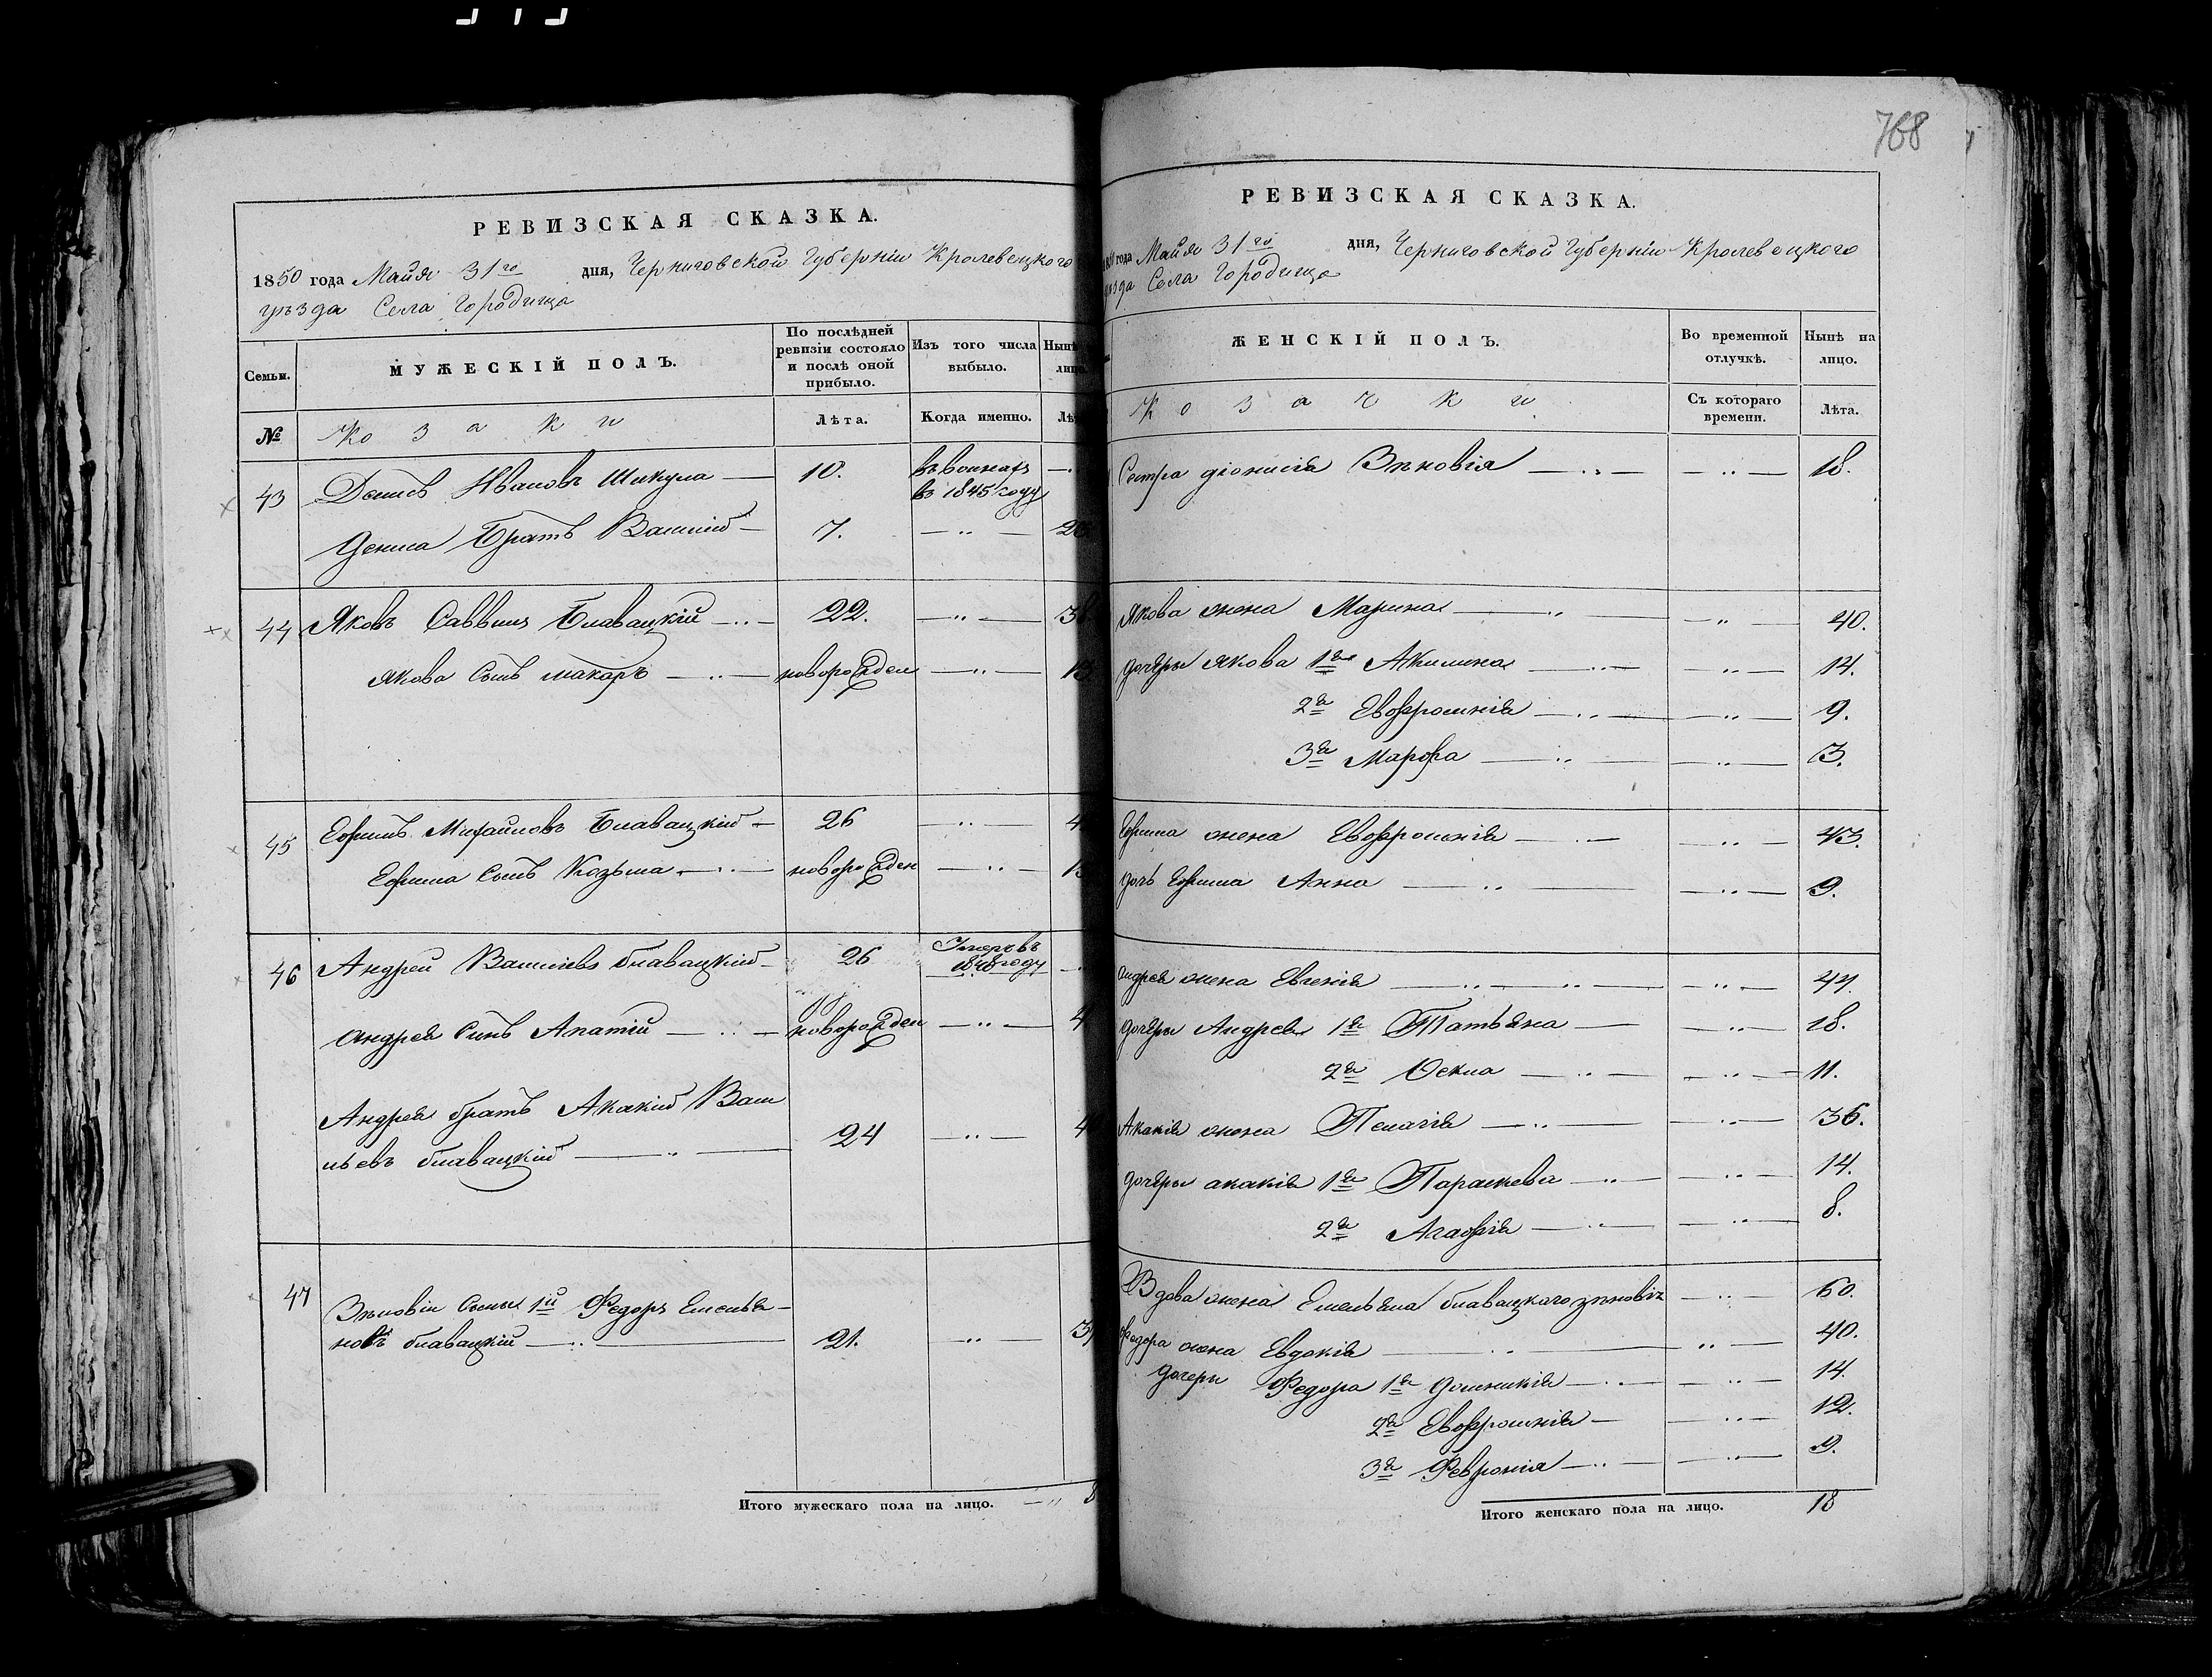 768
РЕВИЗСКАЯ СКАЗКА.
1850 года Майя 31го дня, Черниговской Губерніи Кролевецкого
уѣзда Села Городища
Семьи.
МУЖЕСКІЙ ПОЛЪ.
По послѣдней ревизіи состояло и послѣ оной прибыло.
Изъ того числа выбыло.
Нынѣ
№
Козаки
Лѣта.
Когда именно.
43 Денисъ Ивановъ Шикула 10. въ
въ 1845 году
Дениса Братъ Василій 7.
44 Яковъ Саввинъ Блавацкій 22.
Якова Сынъ Макаръ новорожден
45 Ефимъ Михайловъ Блавацкій 26
Ефима Сынъ Козьма новорожден
46 Андрей Васильевъ Блавацкій 26 Умеръ въ
1848 году
Андрея Сынъ Ипатій новорожден
Андрея братъ Акакій Васи
льевъ блавацкій 24
47 Зѣновіи Сыны 1й Федоръ Емелья-
новъ блавацкій 21.
Итого мужескаго пола на лицо. 8
РЕВИЗСКАЯ СКАЗКА.
года Майя 31го дня, Черниговской Губерніи Кролевецкого
Села Городища
ЖЕНСКІЙ ПОЛЪ.
Во временной отлучкѣ.
Нынѣ на лицо.
Козачки
Съ котораго времени.
Лѣта.
Сестра діонисія Зѣновія 18.
Якова жена Марина 40.
дочеры якова 1я Акилина 14.
2я Евфросинія 9.
3я Марфа 3.
Ефима жена Евфросинія 43.
дочь Ефима Анна 9.
Андрея жена Евгенія 44.
дочеры Андрея 1я Татьяна 18.
2я 11.
Акакія жена Пелагія 36.
дочеры акакія 1я Параскева 14.
2я Агафія 8.
Вдова жена Емельяна блавацкаго зѣновія 60.
Федора жена Евдокія 40.
дочери Федора 1я домникія 14.
2я Евфросинія 12.
3я Февронія 9.
Итого женскаго пола на лицо. 18